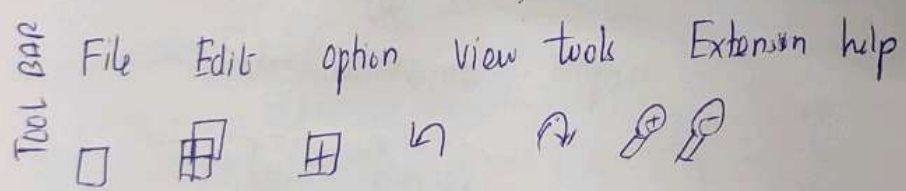 TOOL BAR
File Edit option View tools Extension help